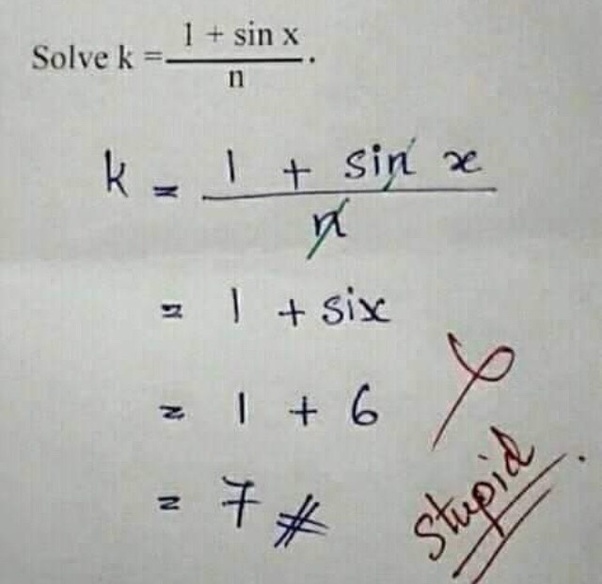 Solve k = 1 + sin x / n .
k = 1 + sin x / n
= 1 + six
= 1 + 6
= 7 #
Stupid.